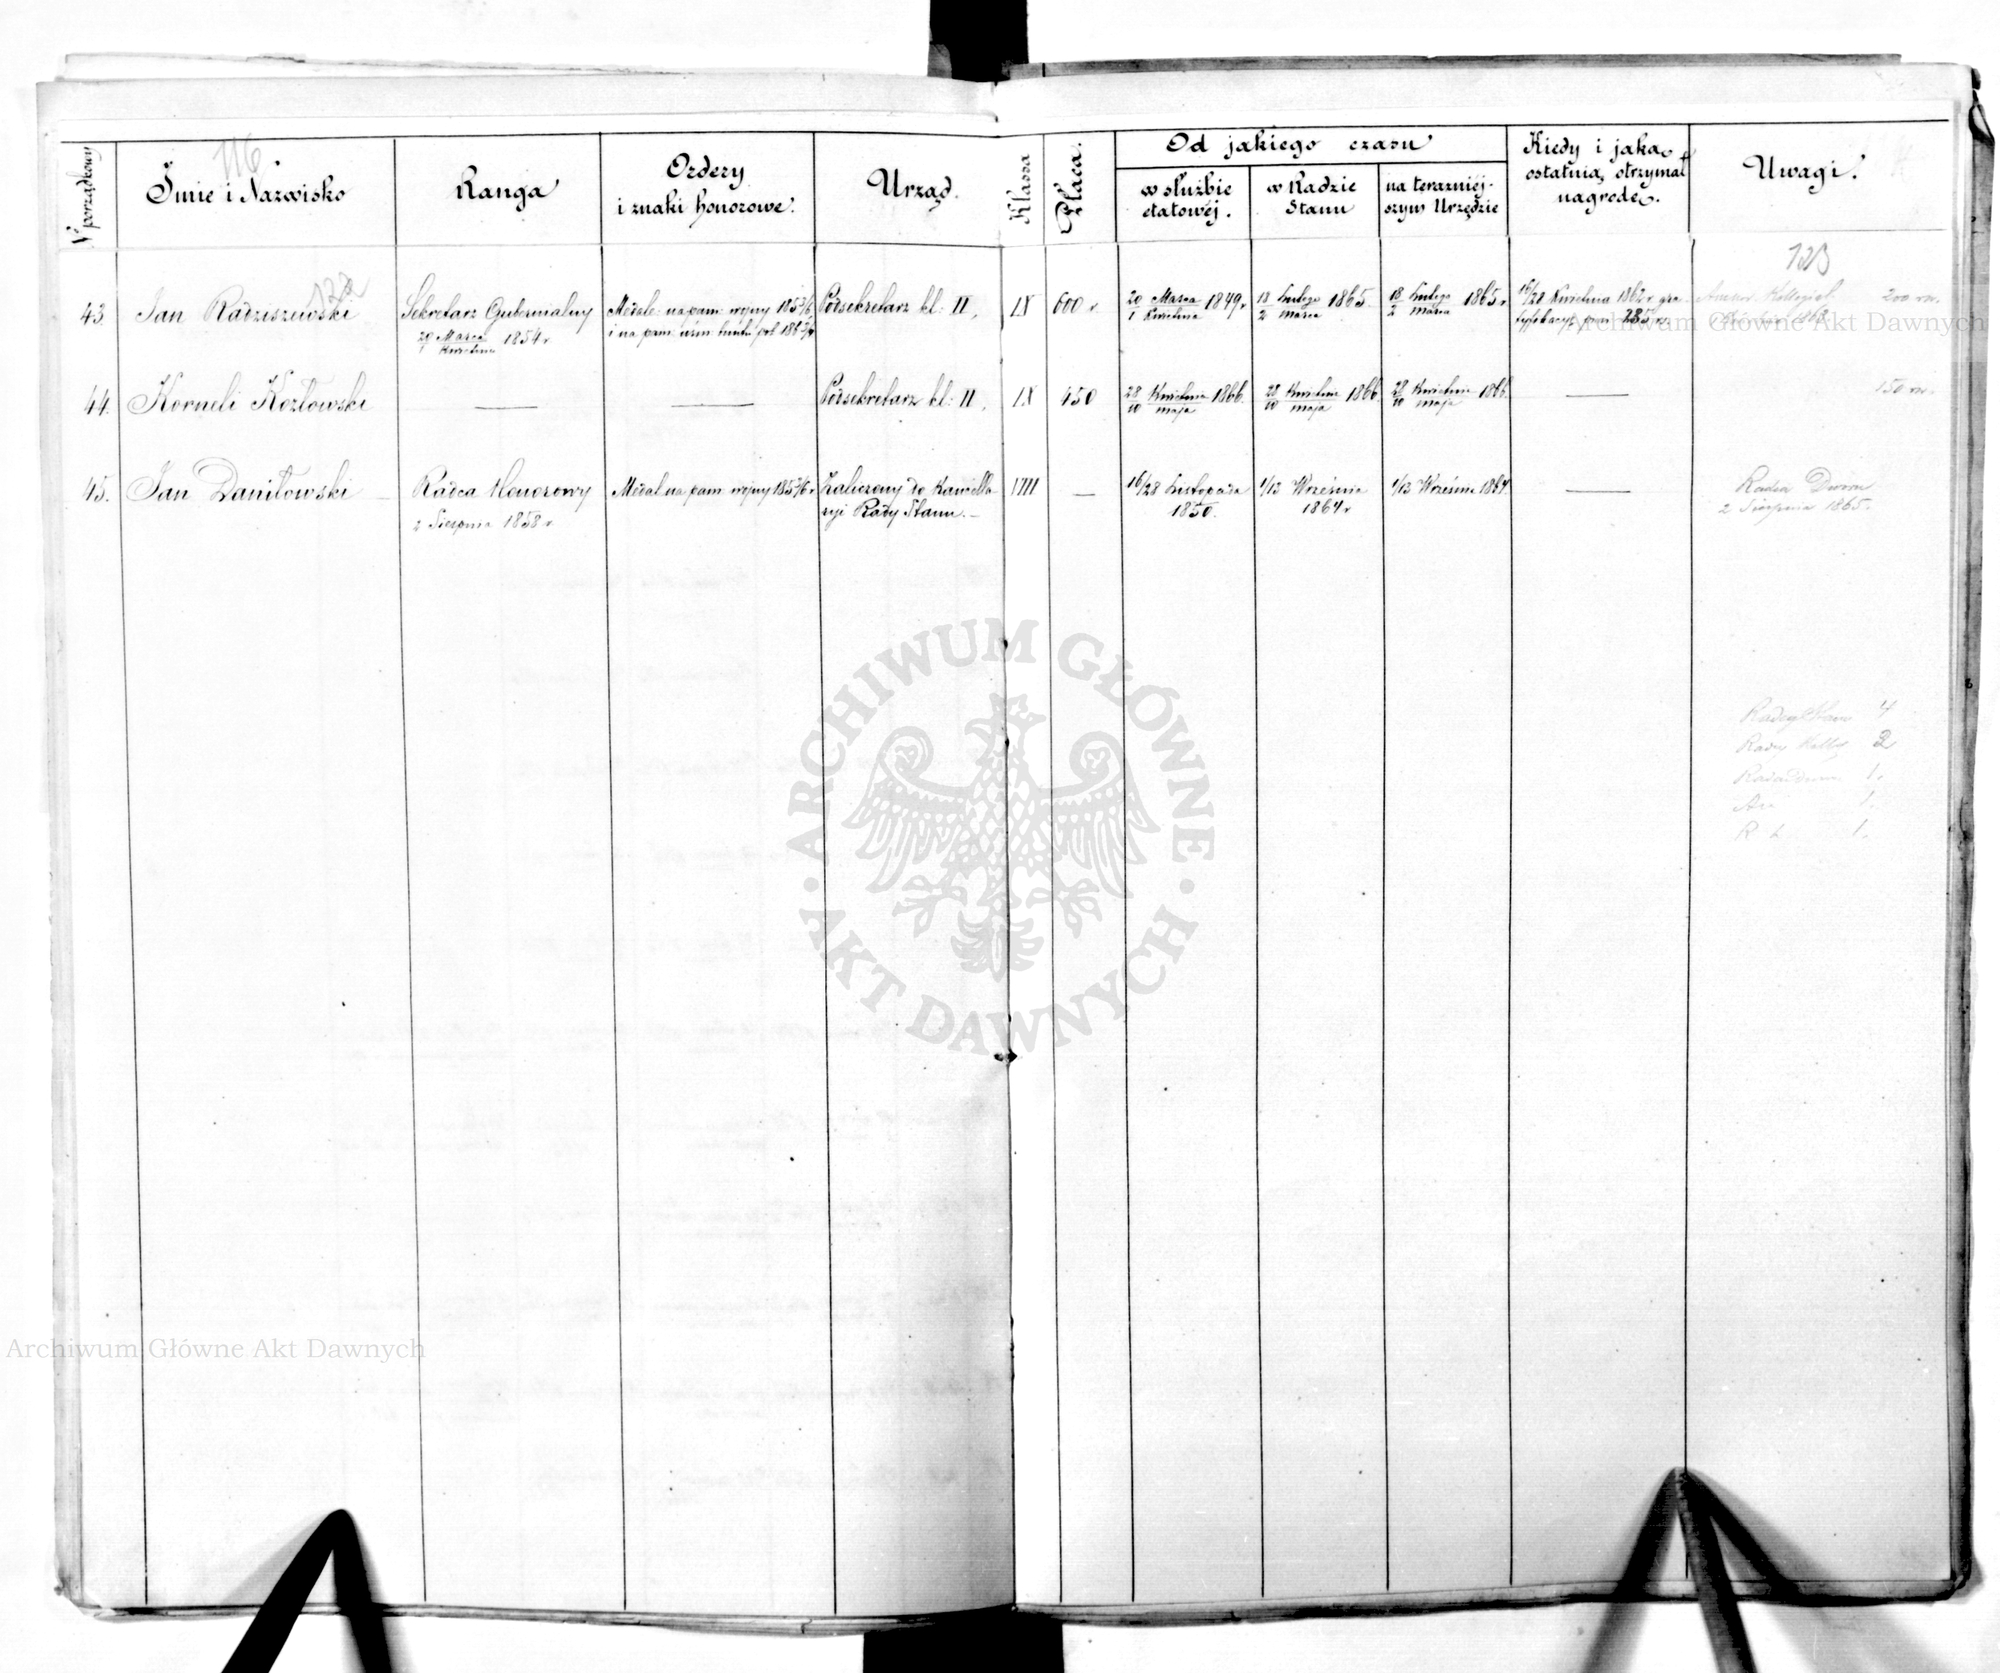 116
Nº porządkowy
Imie i Nazwisko
Ranga
Ordery
i znaki honorowe.
Urząd.
Klassa
Płaca.
Od jakiego czasu
w służbie
etatowéj.
w Radzie
Stanu
na teraźniéj-
szym Urzędzie
Kiedy i jaką
ostatnią otrzymał
nagrodę.
Uwagi.
122
123
43.
Jan Radziszewski
Sekretarz Gubernialny
20 Marca / 1 Kwietnia 1854 r
Medale na pam: wojny 1853/6
i na pam: uśm: buntu pol: 1863/4
Podsekretarz kl: II,
IX
600 r.
20 Marca / 1 Kwietnia 1849 r
18 Lutego / 2 Marca 1865.
18 Lutego / 2 Marca 1865 r
16/28 Kwietnia 1862 r gra-
tyfikacyę rs. 285
Assesor Kollegial.
200 rs.
44.
Korneli Kozłowski
—
—
Podsekretarz kl: II,
IX
450
28 Kwietnia / 10 maja 1866.
28 Kwietnia / 10 maja 1866.
28 Kwietnia / 10 maja 1866.
—
150 rs.
45.
Jan Daniłowski
Radca Honorowy
2 Sierpnia 1858 r
Medal na pam: wojny 1853/6 r
Zaliczony do Kancella-
ryi Rady Stanu. —
VIII
—
16/28 Listopada
1850.
1/13 Września
1864 r
1/13 Wrześnie 1864.
—
Radca Dworu
2 Sierpnia 1865.
Radcy Stanu 4
Radcy Koll 2
Radca Dworu 1.
1.
1.
ARCHIWUM GŁÓWNE
AKT DAWNYCH
Archiwum Główne Akt Dawnych
Archiwum Główne Akt Dawnych